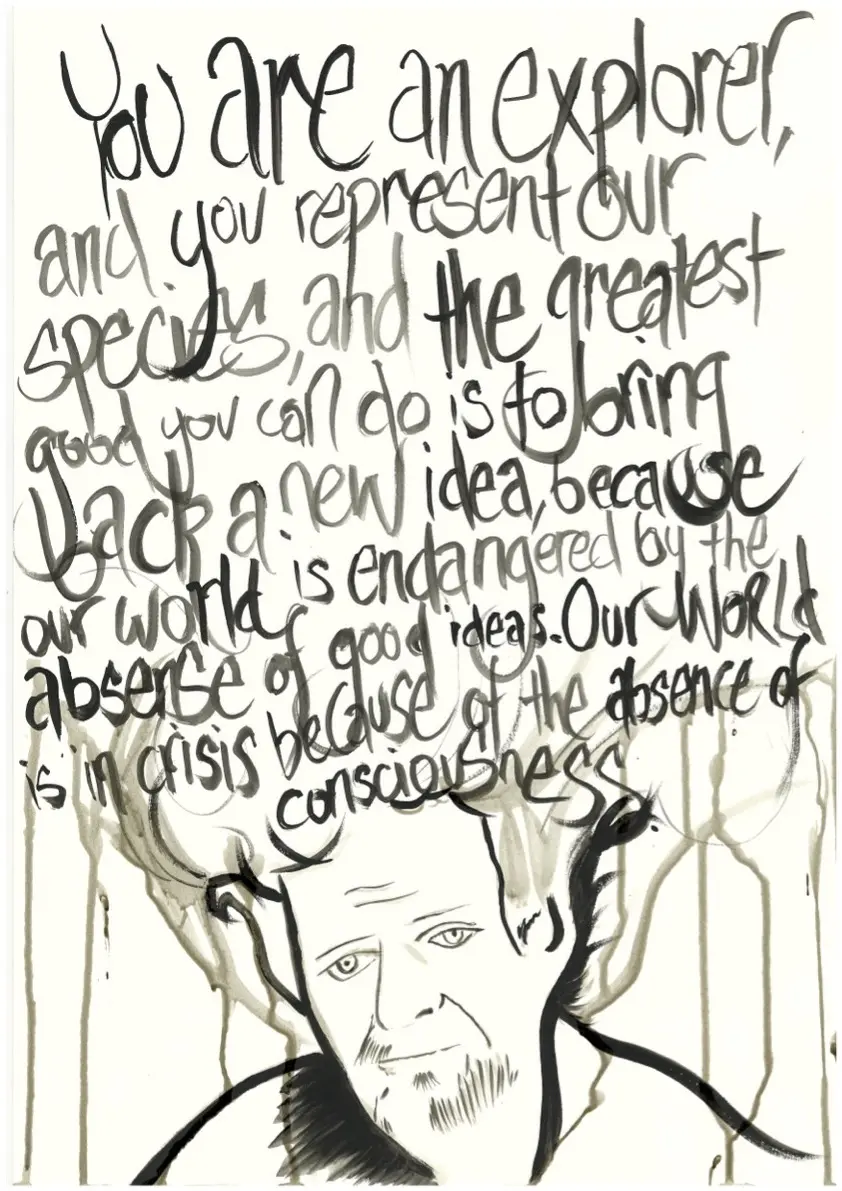 You are an explorer,
and you represent our
species, and the greatest
good you can do is to bring
back a new idea, because
our world is endangered by the
absense of good ideas. Our World
is in crisis because of the absence of
consciousness